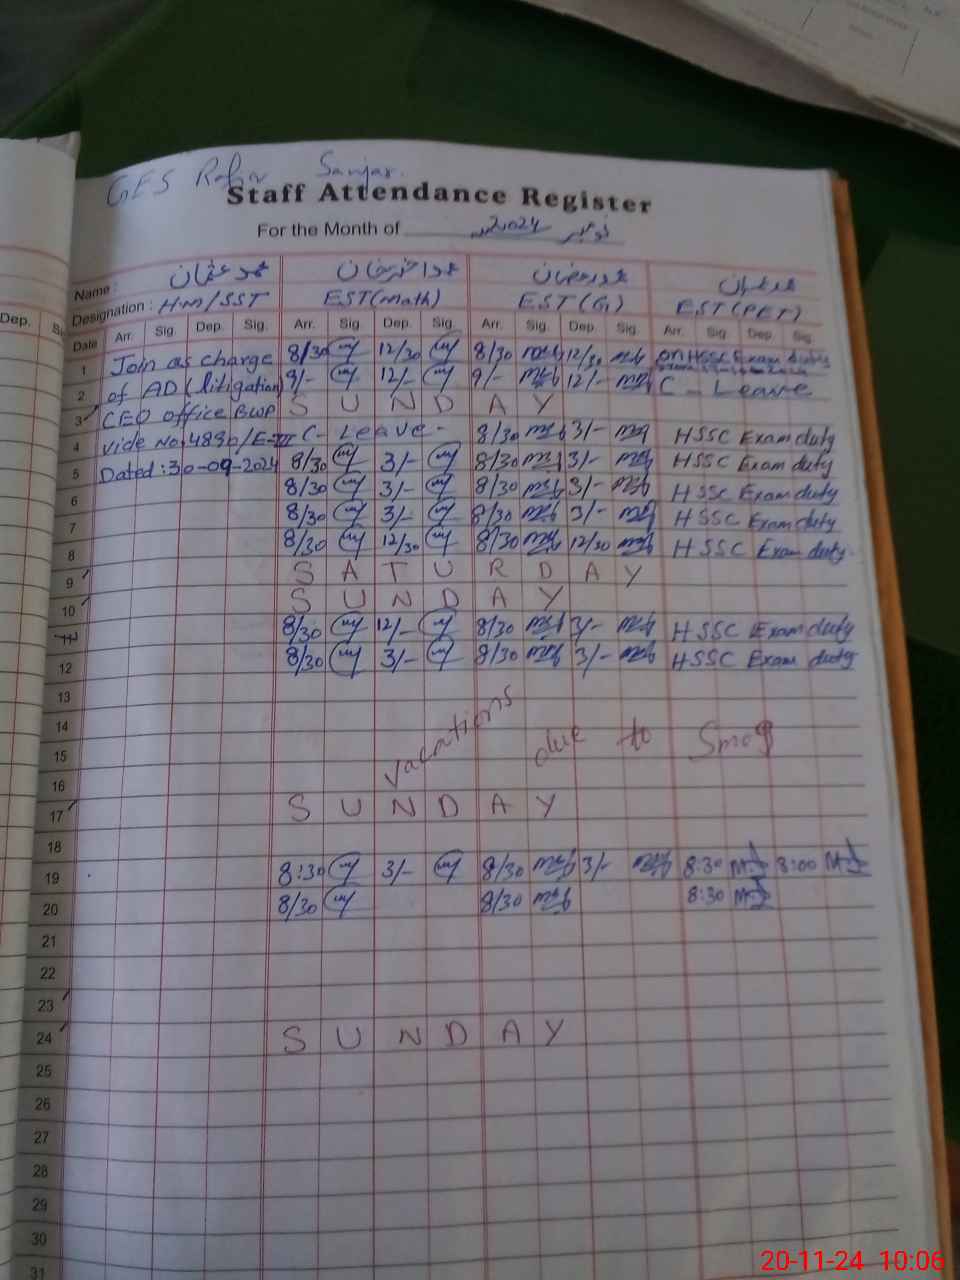 GES Sanjar.
Staff Attendance Register
For the Month of نومبر 2024
Name : محمد عثمان
Designation : H.M/SST EST(math) EST(G) EST(PET)
Dep. Date Arr. Sig. Dep. Sig. Arr. Sig. Dep. Sig. Arr. Sig. Dep. Sig. Arr. Sig. Dep. Sig.
1 Join as charge 8/30 12/30 8/30 12/30 on HSSC Exam duty
2 of AD (litigation) 9/- 12/- 9/- 12/- C - Leave
3 CEO office BWP S U N D A Y
4 vide No. C- Leave - 8/30 3/- HSSC Exam duty
5 Dated : 30-09-2024 8/30 3/- 8/30 3/- HSSC Exam duty
6 8/30 3/- 8/30 3/- HSSC Exam duty
7 8/30 3/- 8/30 3/- HSSC Exam duty
8 8/30 12/30 8/30 12/30 HSSC Exam duty.
9 S A T U R D A Y
10 S U N D A Y
11 8/30 12/- 8/30 3/- HSSC Exam duty
12 8/30 3/- 8/30 3/- HSSC Exam duty
13
14
15 vacations due to Smog
16
17 S U N D A Y
18
19 8:30 3/- 8/30 3/- 8:30 3:00
20 8/30 8/30 8:30
21
22
23
24 S U N D A Y
25
26
27
28
29
30
31
20-11-24 10:06